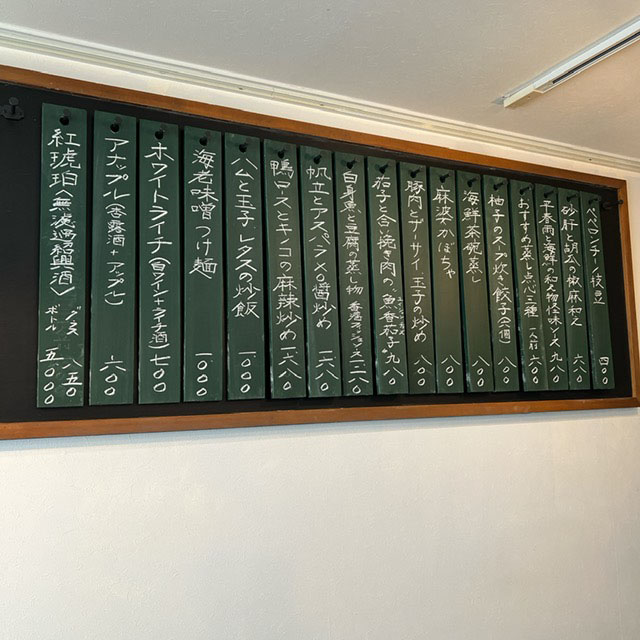 ペペロンチーノ枝豆 四〇〇
砂肝と胡瓜の椒麻和え 六八〇
春雨と海鮮の和え物怪味ソース 九八〇
おすすめ蒸し点心三種 一人前 六〇〇
柚子のスープ炊き餃子(二個) 五〇〇
海鮮茶碗蒸し 八〇〇
麻婆かぼちゃ 八〇〇
豚肉とザーサイ、玉子の炒め 八〇〇
茄子と合い挽き肉の、魚香茄子 九八〇
白身魚と豆腐の蒸し物 香港 一二八〇
帆立とアスパラ X.O醤炒め 一二八〇
鴨ロースとキノコの麻辣炒め 一二八〇
ハムと玉子 レタスの炒飯 一〇〇〇
海老味噌つけ麺 一〇〇〇
ホワイトライチ(白ワイン+ライチ酒) 七〇〇
アナップル(杏露酒+アップル) 六〇〇
紅琥珀〈無濾過紹興酒〉 グラス 八五〇
ボトル 五〇〇〇